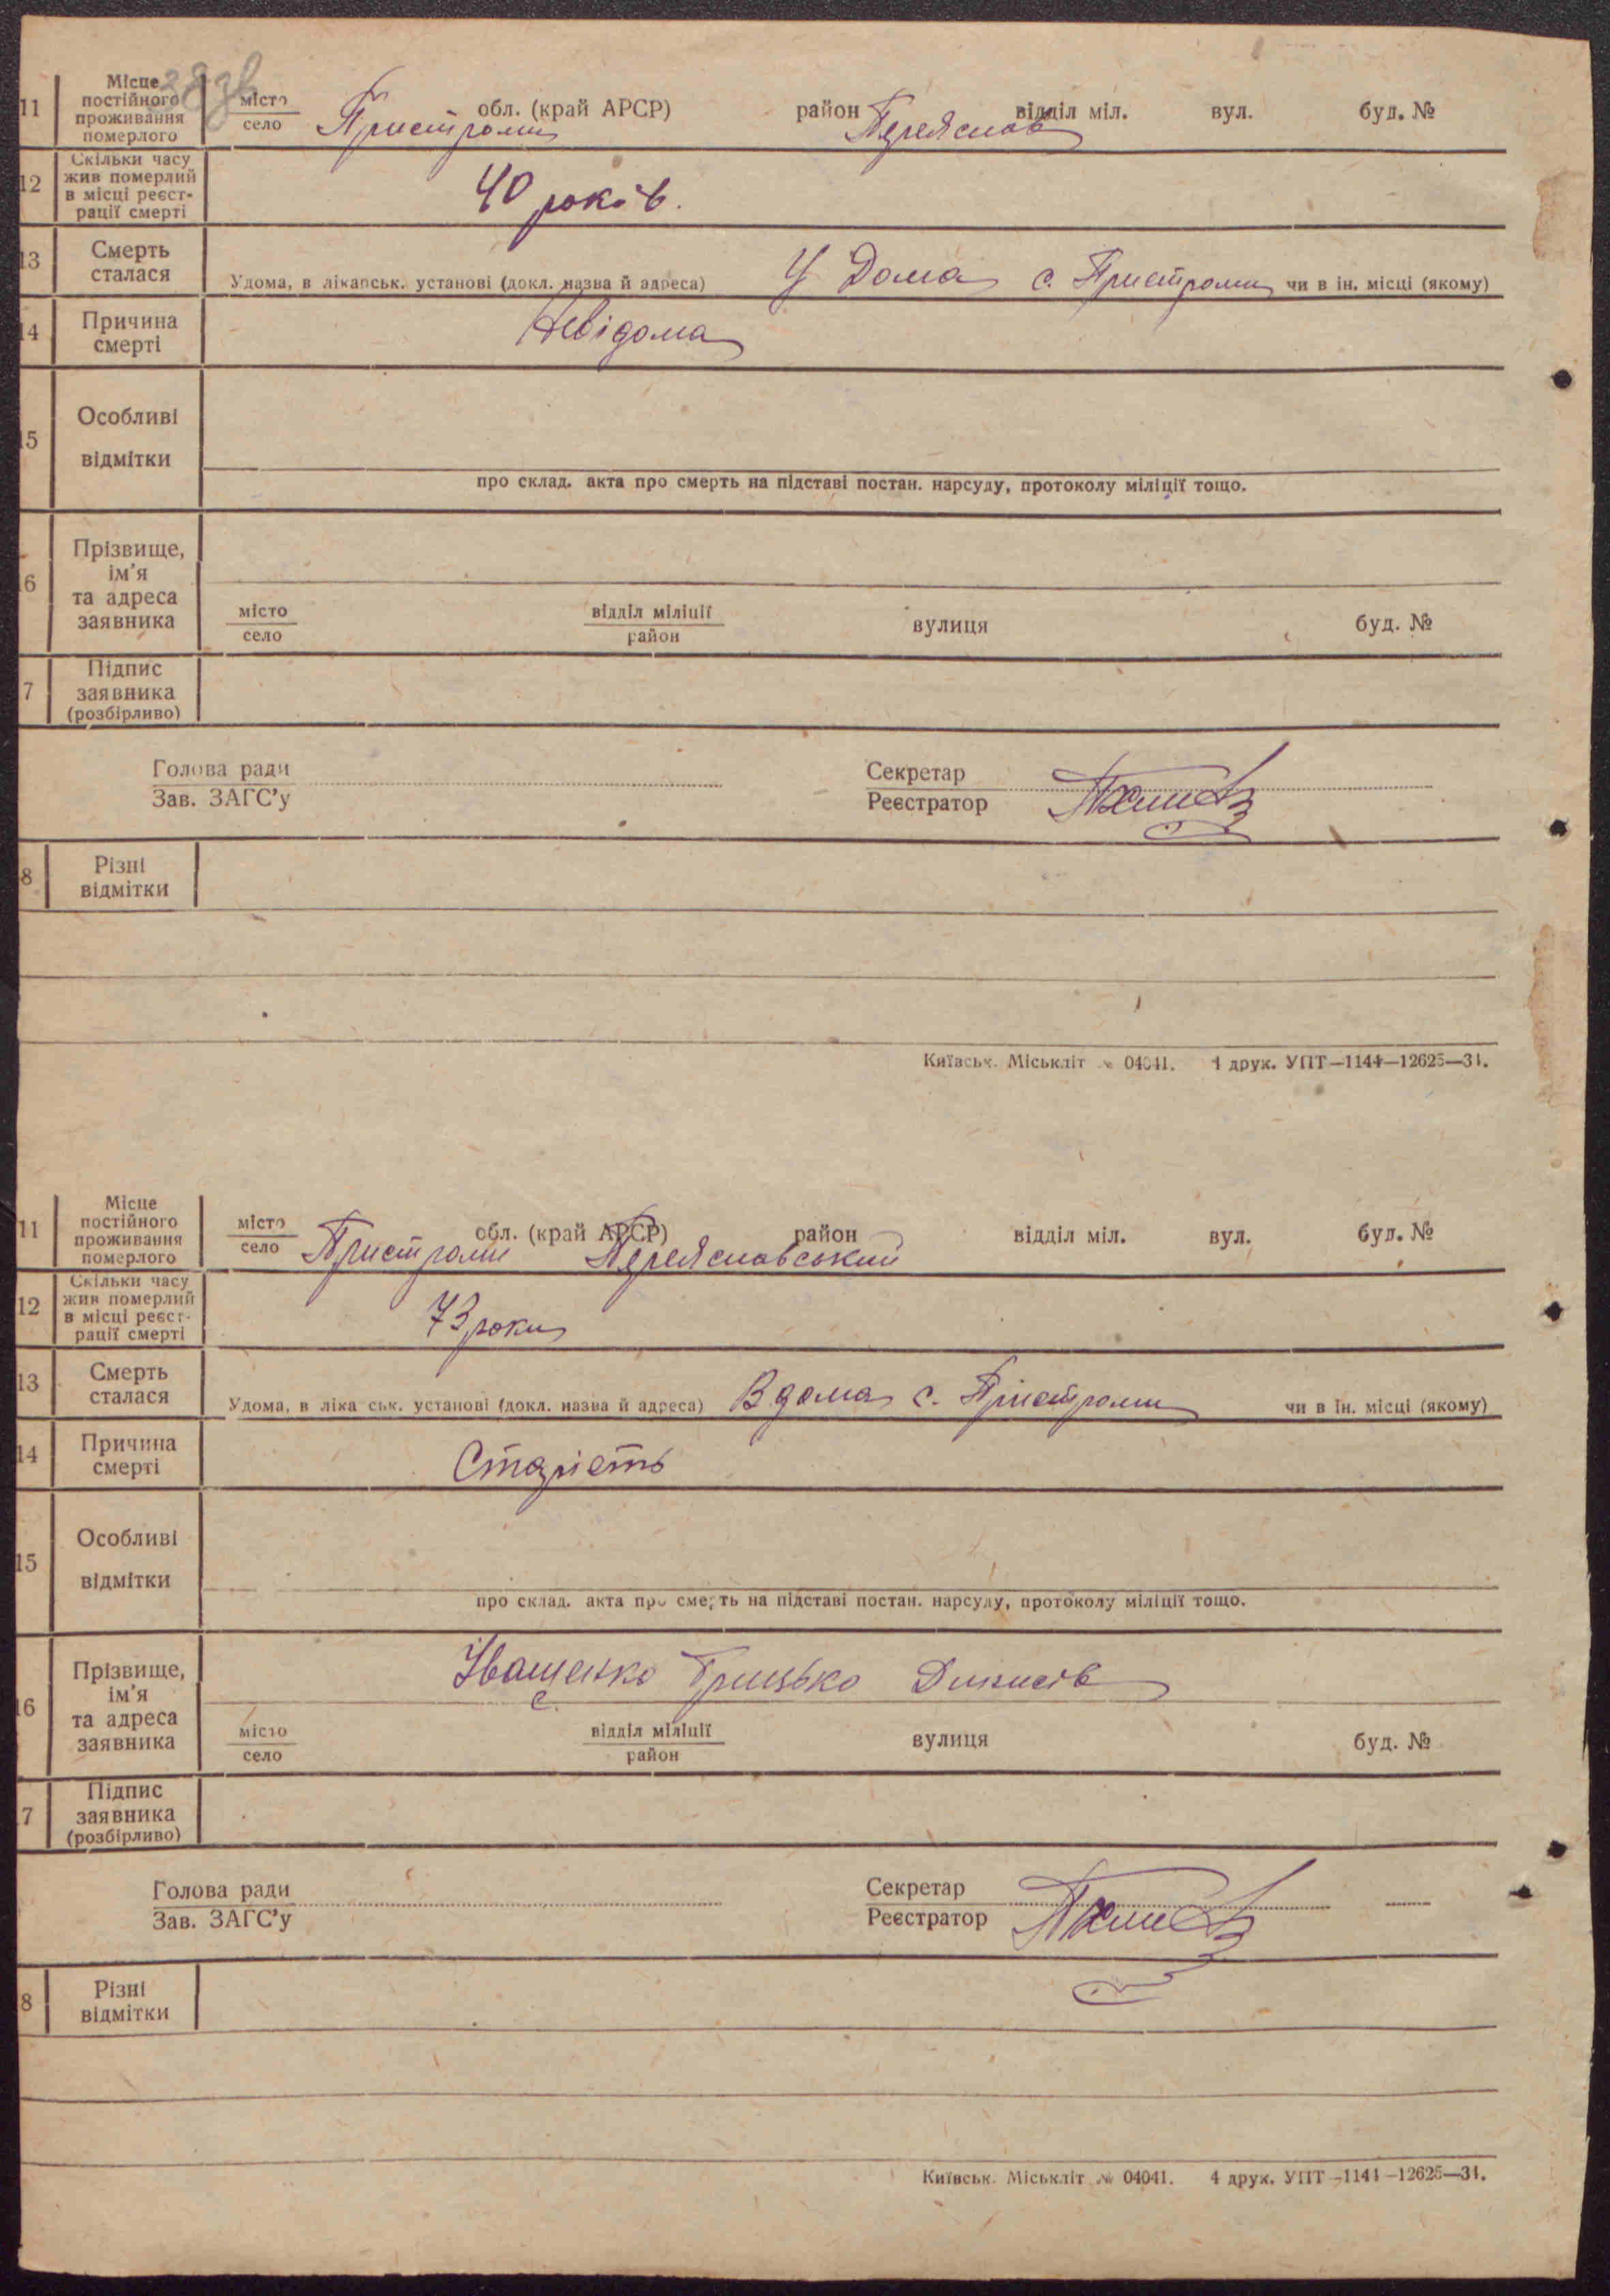 38зв
11 Місце постійного проживання померлого місто село Пристроми обл. (край АРСР) район Переяслав відділ міл. вул. буд. №
12 Скільки часу жив померлий в місці реєстрації смерті 40 років.
13 Смерть сталася Удома, в лікарськ. установі (докл. назва й адреса) У Дома с. Пристроми чи в ін. місці (якому)
14 Причина смерті Невідома
15 Особливі відмітки
про склад. акта про смерть на підставі постан. нарсуду, протоколу міліції тощо.
6 Прізвище, ім'я та адреса заявника
місто село відділ міліції район вулиця буд. №
7 Підпис заявника (розбірливо)
Голова ради Секретар
Зав. ЗАГС'у Реєстратор
8 Різні відмітки
Київськ. Міськліт № 04041. 4 друк. УПТ—1144—12625—31.
11 Місце постійного проживання померлого місто село Пристроми обл. (край АРСР) Переяславський район відділ міл. вул. буд. №
12 Скільки часу жив померлий в місці реєстрації смерті 73 роки
13 Смерть сталася Удома, в лікарськ. установі (докл. назва й адреса) Вдома с. Прістроми чи в ін. місці (якому)
14 Причина смерті Старість
15 Особливі відмітки
про склад. акта про смерть на підставі постан. нарсуду, протоколу міліції тощо.
16 Прізвище, ім'я та адреса заявника Іващенко Грицько Динисів
місто село відділ міліції район вулиця буд. №
7 Підпис заявника (розбірливо)
Голова ради Секретар
Зав. ЗАГС'у Реєстратор
8 Різні відмітки
Київськ. Міськліт № 04041. 4 друк. УПТ—1144—12625—31.